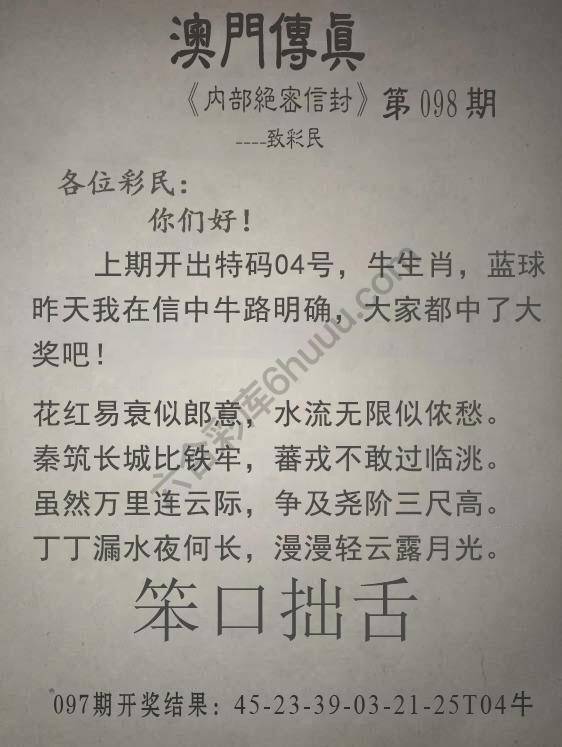 澳門傳眞
《内部絕密信封》第098期
----致彩民
各位彩民：
你们好！
上期开出特码04号，牛生肖，蓝球
昨天我在信中牛路明确，大家都中了大
奖吧！
花红易衰似郎意，水流无限似侬愁。
秦筑长城比铁牢，蕃戎不敢过临洮。
虽然万里连云际，争及尧阶三尺高。
丁丁漏水夜何长，漫漫轻云露月光。
笨口拙舌
097期开奖结果：45-23-39-03-21-25T04牛
六合彩库6huuu.com